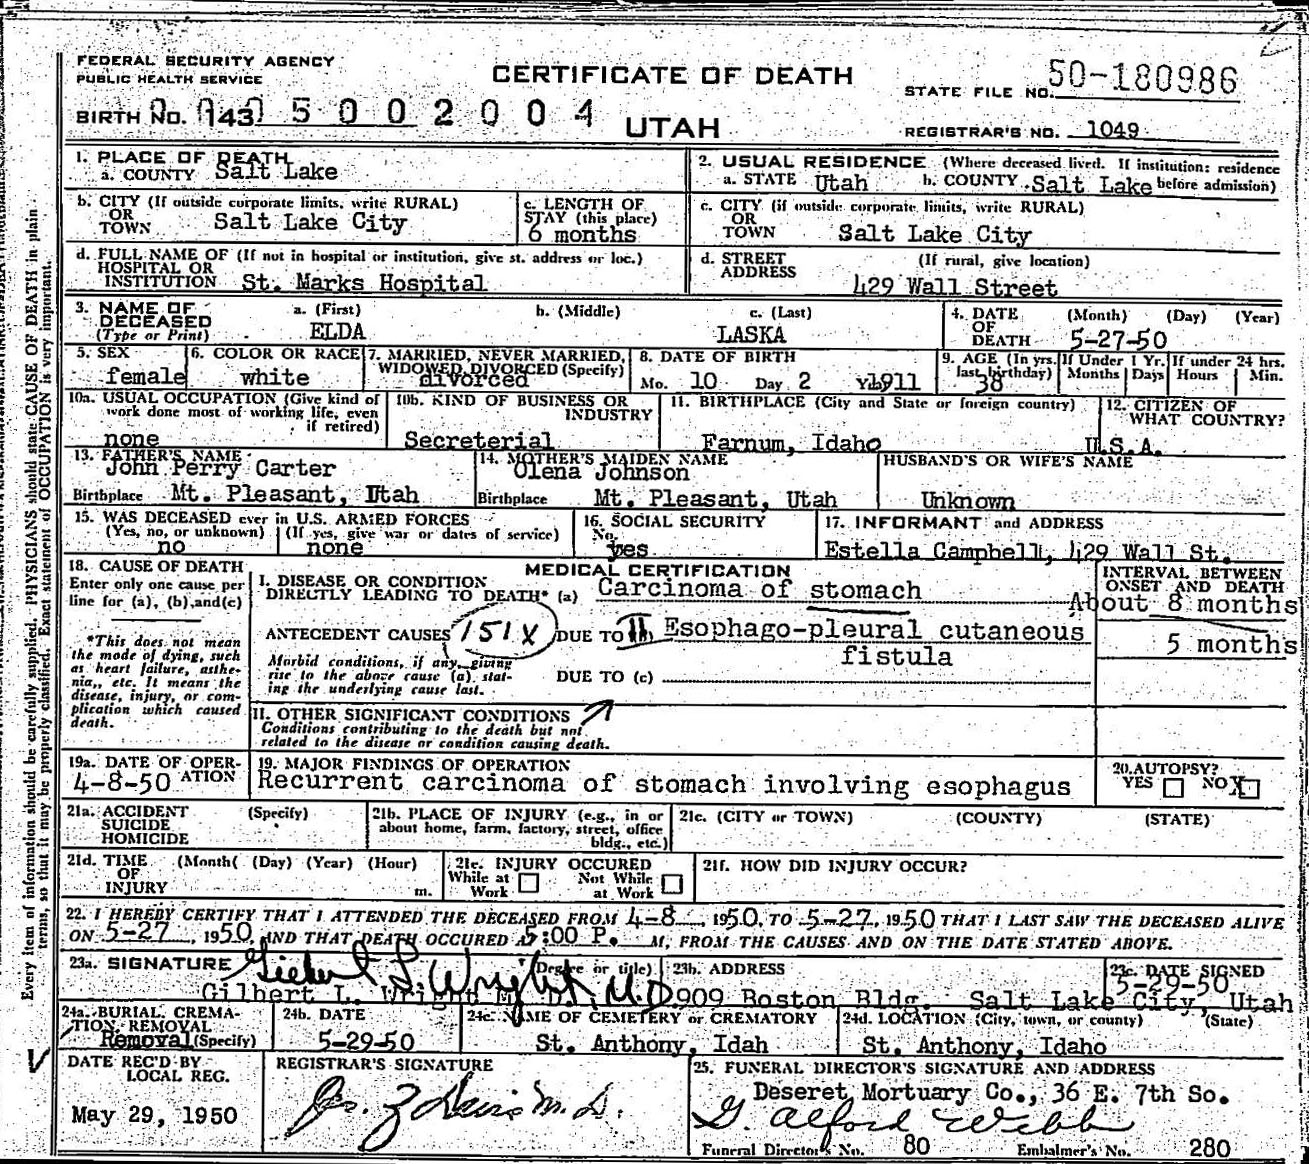 FEDERAL SECURITY AGENCY
PUBLIC HEALTH SERVICE
CERTIFICATE OF DEATH
STATE FILE NO. 50-180986
BIRTH NO. 143 0 5 0 0 2 0 0 4
UTAH
REGISTRAR'S NO. 1049
1. PLACE OF DEATH
a. COUNTY Salt Lake
2. USUAL RESIDENCE (Where deceased lived. If institution: residence before admission)
a. STATE Utah b. COUNTY Salt Lake
b. CITY (If outside corporate limits, write RURAL)
OR
TOWN Salt Lake City
c. LENGTH OF
STAY (this place)
6 months
c. CITY (if outside corporate limits, write RURAL)
OR
TOWN Salt Lake City
d. FULL NAME OF (If not in hospital or institution, give st. address or loc.)
HOSPITAL OR
INSTITUTION St. Marks Hospital
d. STREET (If rural, give location)
ADDRESS 429 Wall Street
3. NAME OF
DECEASED
(Type or Print)
a. (First) b. (Middle) c. (Last)
ELDA LASKA
4. DATE (Month) (Day) (Year)
OF
DEATH 5-27-50
5. SEX
female
6. COLOR OR RACE
white
7. MARRIED, NEVER MARRIED,
WIDOWED, DIVORCED (Specify)
divorced
8. DATE OF BIRTH
Mo. 10 Day 2 Yr. 1911
9. AGE (In yrs.
last birthday)
38
If Under 1 Yr.
Months Days
If under 24 hrs.
Hours Min.
10a. USUAL OCCUPATION (Give kind of
work done most of working life, even
if retired)
none
10b. KIND OF BUSINESS OR
INDUSTRY
Secreterial
11. BIRTHPLACE (City and State or foreign country)
Farnum, Idaho
12. CITIZEN OF
WHAT COUNTRY?
U.S.A.
13. FATHER'S NAME
John Perry Carter
Birthplace Mt. Pleasant, Utah
14. MOTHER'S MAIDEN NAME
Olena Johnson
Birthplace Mt. Pleasant, Utah
HUSBAND'S OR WIFE'S NAME
Unknown
15. WAS DECEASED ever in U.S. ARMED FORCES
(Yes, no, or unknown) (If yes, give war or dates of service)
no none
16. SOCIAL SECURITY
No.
yes
17. INFORMANT and ADDRESS
Estella Campbell, 429 Wall St.
18. CAUSE OF DEATH
Enter only one cause per
line for (a), (b), and (c)
*This does not mean
the mode of dying, such
as heart failure, asthe-
nia,, etc. It means the
disease, injury, or com-
plication which caused
death.
MEDICAL CERTIFICATION
I. DISEASE OR CONDITION
DIRECTLY LEADING TO DEATH* (a) Carcinoma of stomach
ANTECEDENT CAUSES 151X DUE TO II Esophago-pleural cutaneous
fistula
Morbid conditions, if any, giving
rise to the above cause (a) stat-
ing the underlying cause last.
DUE TO (c)
INTERVAL BETWEEN
ONSET AND DEATH
About 8 months
5 months
II. OTHER SIGNIFICANT CONDITIONS
Conditions contributing to the death but not
related to the disease or condition causing death.
19a. DATE OF OPER-
ATION
4-8-50
19. MAJOR FINDINGS OF OPERATION
Recurrent carcinoma of stomach involving esophagus
20. AUTOPSY?
YES NO X
21a. ACCIDENT (Specify)
SUICIDE
HOMICIDE
21b. PLACE OF INJURY (e.g., in or
about home, farm, factory, street, office
bldg., etc.)
21c. (CITY or TOWN) (COUNTY) (STATE)
21d. TIME (Month( (Day) (Year) (Hour)
OF
INJURY m.
21e. INJURY OCCURED
While at Work Not While at Work
21f. HOW DID INJURY OCCUR?
22. I HEREBY CERTIFY THAT I ATTENDED THE DECEASED FROM 4-8, 1950, TO 5-27, 1950 THAT I LAST SAW THE DECEASED ALIVE
ON 5-27, 1950, AND THAT DEATH OCCURED AT 5:00 P. M, FROM THE CAUSES AND ON THE DATE STATED ABOVE.
23a. SIGNATURE (Degree or title)
Gilbert L. Wright M.D.
Gilbert L. Wright M. D.
23b. ADDRESS
909 Boston Bldg. Salt Lake City, Utah
23c. DATE SIGNED
5-29-50
24a. BURIAL, CREMA-
TION, REMOVAL
Removal (Specify)
24b. DATE
5-29-50
24c. NAME OF CEMETERY or CREMATORY
St. Anthony, Idah
24d. LOCATION (City, town, or county) (State)
St. Anthony, Idaho
DATE REC'D BY
LOCAL REG.
May 29, 1950
REGISTRAR'S SIGNATURE
25. FUNERAL DIRECTOR'S SIGNATURE AND ADDRESS
Deseret Mortuary Co., 36 E. 7th So.
G. Alford Webb
Funeral Director's No. 80 Embalmer's No. 280
Every item of information should be carefully supplied. PHYSICIANS should state CAUSE OF DEATH in plain
terms, so that it may be properly classified. Exact statement of OCCUPATION is very important.